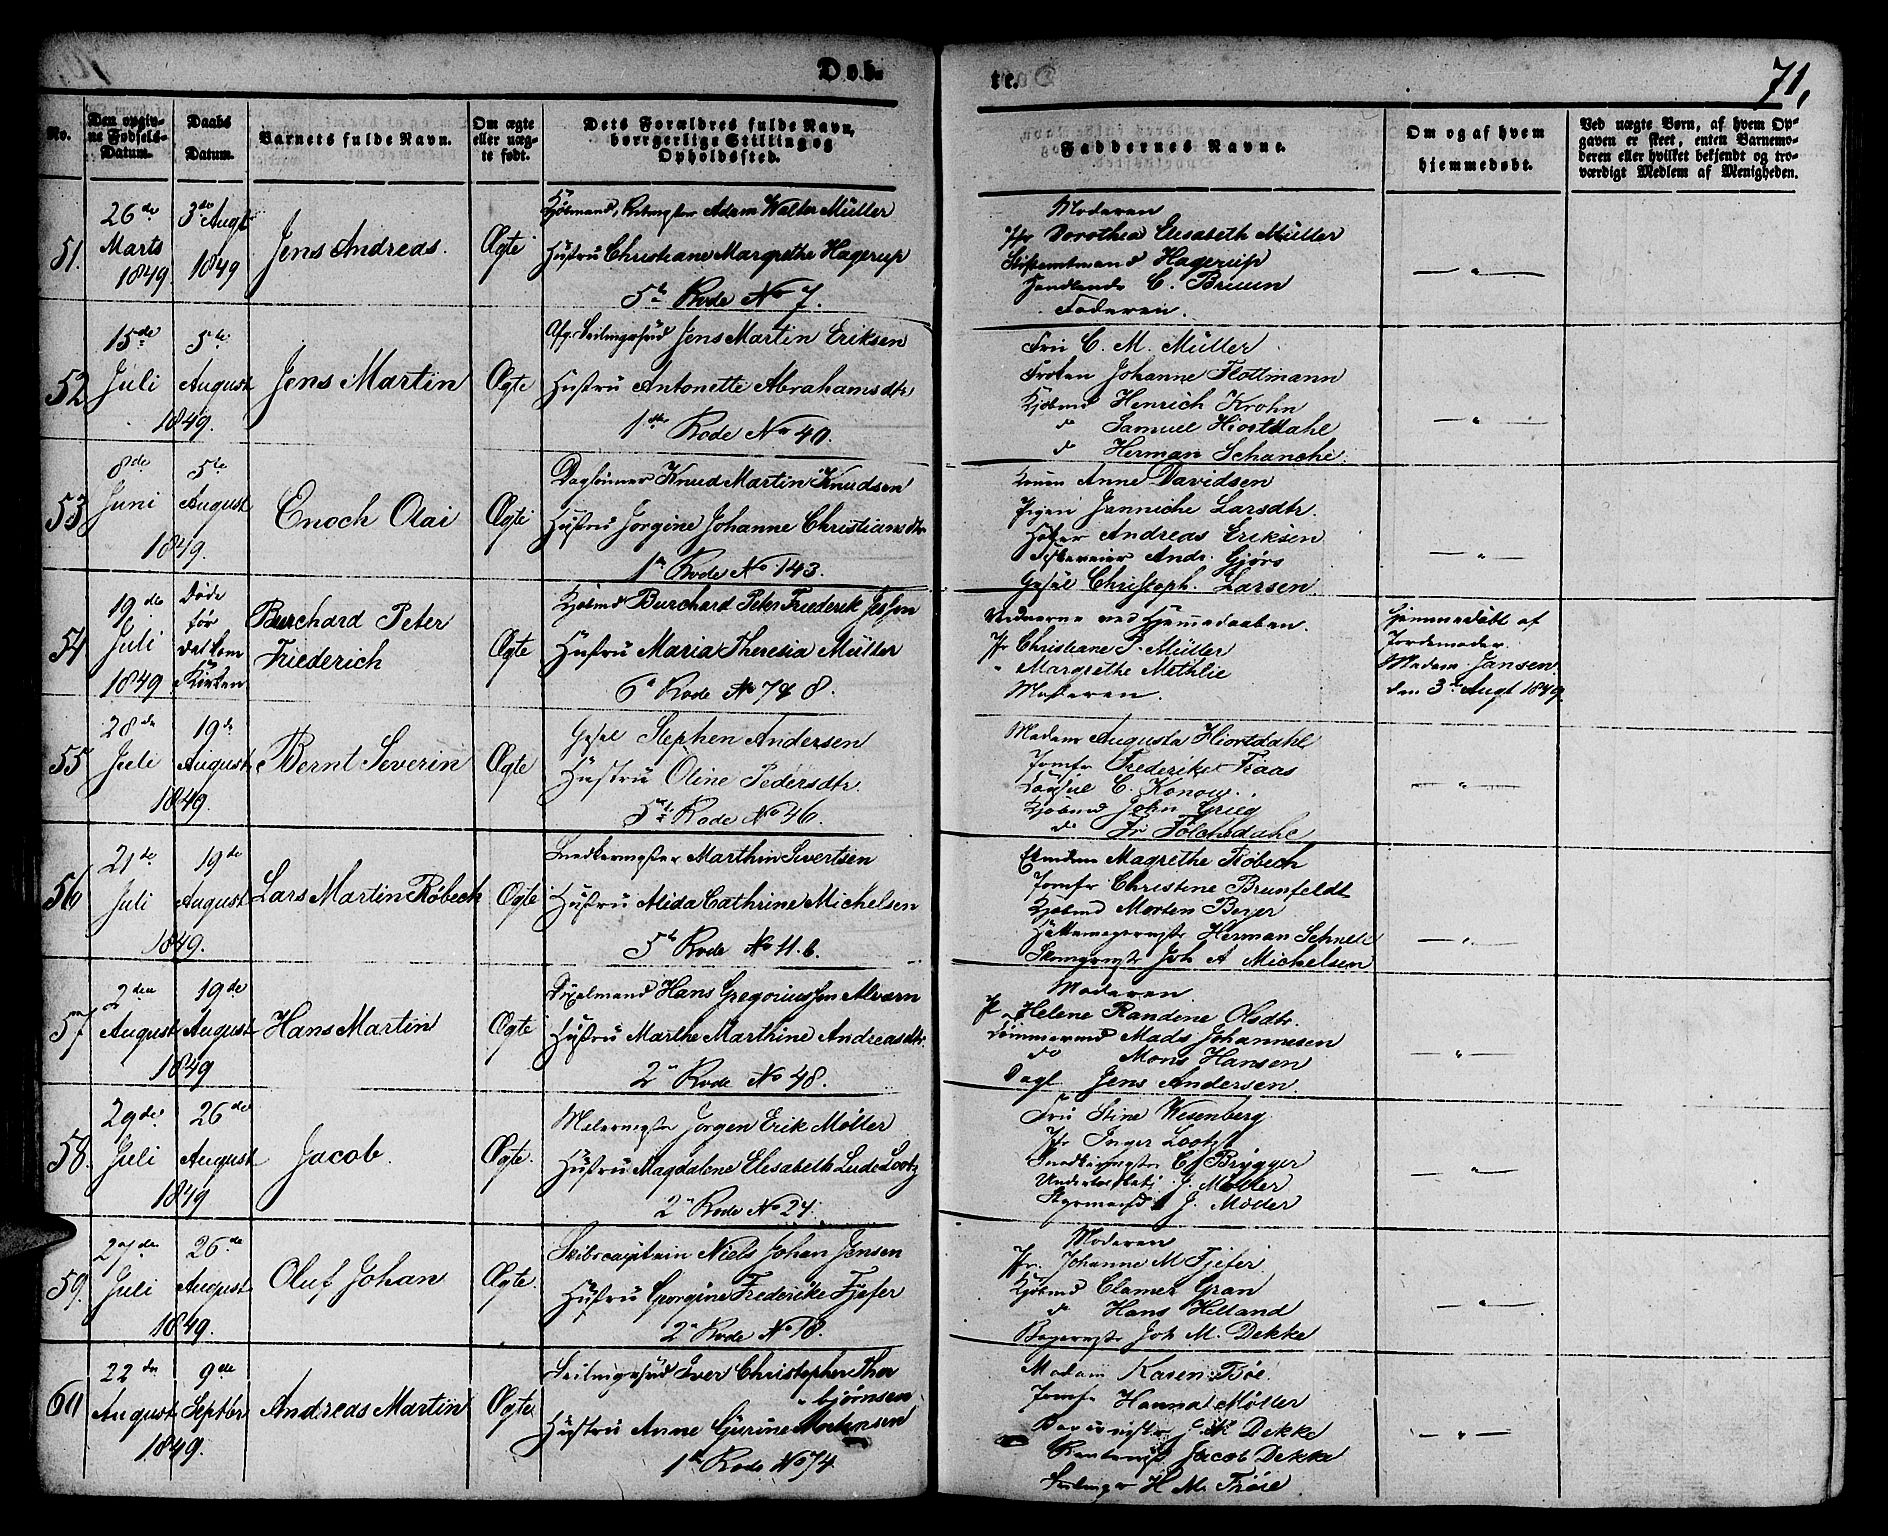 Døb-
te.
71,
No.
Den opgiv-
ne Fødsels-
Datum.
Daabs
Datum.
Barnets fulde Navn.
Om ægte
eller uæg-
te født.
Dets Forældres fulde Navn,
borgerlige Stilling og
Opholdssted.
Faddernes Navne.
Om og af hvem
hjemmedøbt.
Ved uægte Børn, af hvem Op-
gaven er skeet, enten Barnemo-
deren eller hvilket bekjendt og tro-
værdigt Medlem af Menigheden.
51.
26de
Marts
1849.
3die Augt
1849
Jens Andreas.
Ægte
Kjøbmand, Adam Walter Müller
Hustru Christiane Margrethe Hagerup
5te Rode No 7.
Moderen
Jfr Dorothea Elisabeth Müller
Stiftamtmand Hagerup
C. Bruun
Faderen.
— " —
52
15de
Juli
5te
August
1849.
Jens Martin
Ægte
Jens Martin Eriksen
Hustru Antonette Abrahamsdtr
1ste Rode No 40.
Fru C. M. Müller
Frøken Johanne Flottmann
Kjøbmd Henrich Krohn
do Samuel Hiortdahl
do Herman Schanche
— " —
53
8de
Juni
5te
August
1849.
Enoch Olai
Ægte
Dagleiner Knud Martin Knudsen
Hustru Jorgine Johanne Christiansdtr
1te Rode No 143.
Konen Anne Davidsen
Pigen Janniche Larsdtr.
Andreas Eriksen
Andr. Gjørs
Gesel Christoph. Larsen
— " —
54
19de
Juli
1849
Døde
før
det kom
Kirken
Burchard Peter
Friederich
Ægte
Kjøbmd Burchard Peter Friederik Jessen
Hustru Maria Theresia Müller
6te Rode No 74 8.
Vidnerne ved Hjemmedaaben.
Jfr Christiane P. Müller
" Margrethe Methlie
Moderen.
Hjemmedøbt af
Jordemoder
Madam Jansen
den 3die Augt 1849.
55
28de
Juli
19de
August
1849.
Bernt Severin
Ægte
Gesel Stephen Andersen
Hustru Oline Pedersdtr.
5te Rode No 46.
Madam Augusta Hiortdahl
Jomfr Frederikke Traas
Consul C. Konow.
Kjøbmd John Grieg
do Fr Tolchsdahl
— " —
56
21de
Juli
19de
August
1849.
Lars Martin Røbech
Ægte
Snedkermester Marthin Sivertsen
Hustru Alida Cathrine Michelsen
5te Rode No 11.b.
Magrethe Røbech
Jomfr Christine Brunfeldt
Kjøbmd Morten Beyer
Hattemagermstr Herman Schnell
Skomgrmstr Joh A Michelsen
— " —
57
2den
August
19de
August
1849
Hans Martin
Ægte
Hans Gregoriussen Alværn
Hustru Marthe Marthine Andreasdtr.
2n Rode No 48.
Moderen
P. Helene Randine Olsdtr.
Tømmermd Mads Johannesen
do Mons Hansen
Dagl Jens Andersen.
— " —
58.
29de
Juli
26de
August
1849
Jacob.
Ægte.
Malermstr Jørgen Erik Møller
Hustru Magdalene Elisabeth Lude Lootz
2n Rode No 24.
Fru Stine Wesenberg
Jfr Inger Lootz
Snedkermstr C. Brygger
J. Møller
Styrmand J. Møller
— " —
59.
27de
Juli
26de
August
1849.
Oluf Johan
Ægte.
Skibscapitain Niels Johan Jensen
Hustru Georgine Frederikke Fjefer
2n Rode No 18.
Moderen
Jfr. Johanne M Fjefer
Kjøbmd Clamer Gran
do Hans Helland
Bagermstr Joh M. Dekke
— " —
60
22de
August
9de
Septbr
1849.
Andreas Martin
Ægte.
Iver Christopher Thor
bjørnsen
Hustru Anne Gurine Mortensen
1ste Rode No 74
Madam Karen Bøe.
Jomfr Hanna Møller
J. M Dekke
Jacob Dekke
H M. Trøse
— " —